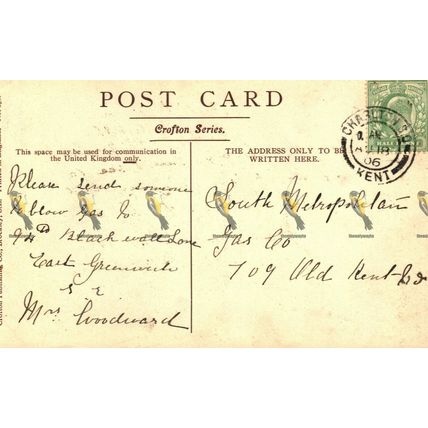 POST CARD
Crofton Series.
This space may be used for communication in
the United Kingdom only.
THE ADDRESS ONLY TO BE
WRITTEN HERE.
HALF
CHARLTON S.O.
06
KENT
Please send someone
to blow Gas to
Blackwall Lane
East Greenwich
S E
Mrs Woodward
South Metropolitan
Gas Co
709 Old Kent Rd